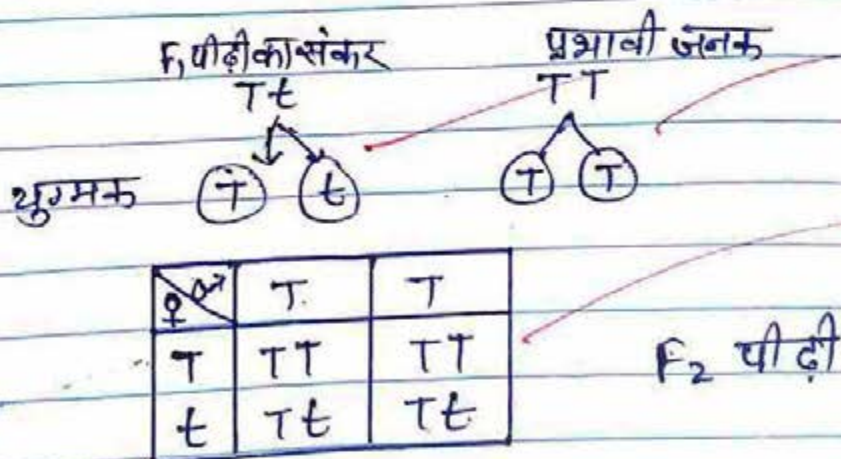 F₁ पीढ़ी का संकर प्रभावी जनक
Tt TT
युग्मक T t T T
♀ ♂ T. T
T TT TT
F₂ पीढ़ी
t Tt Tt